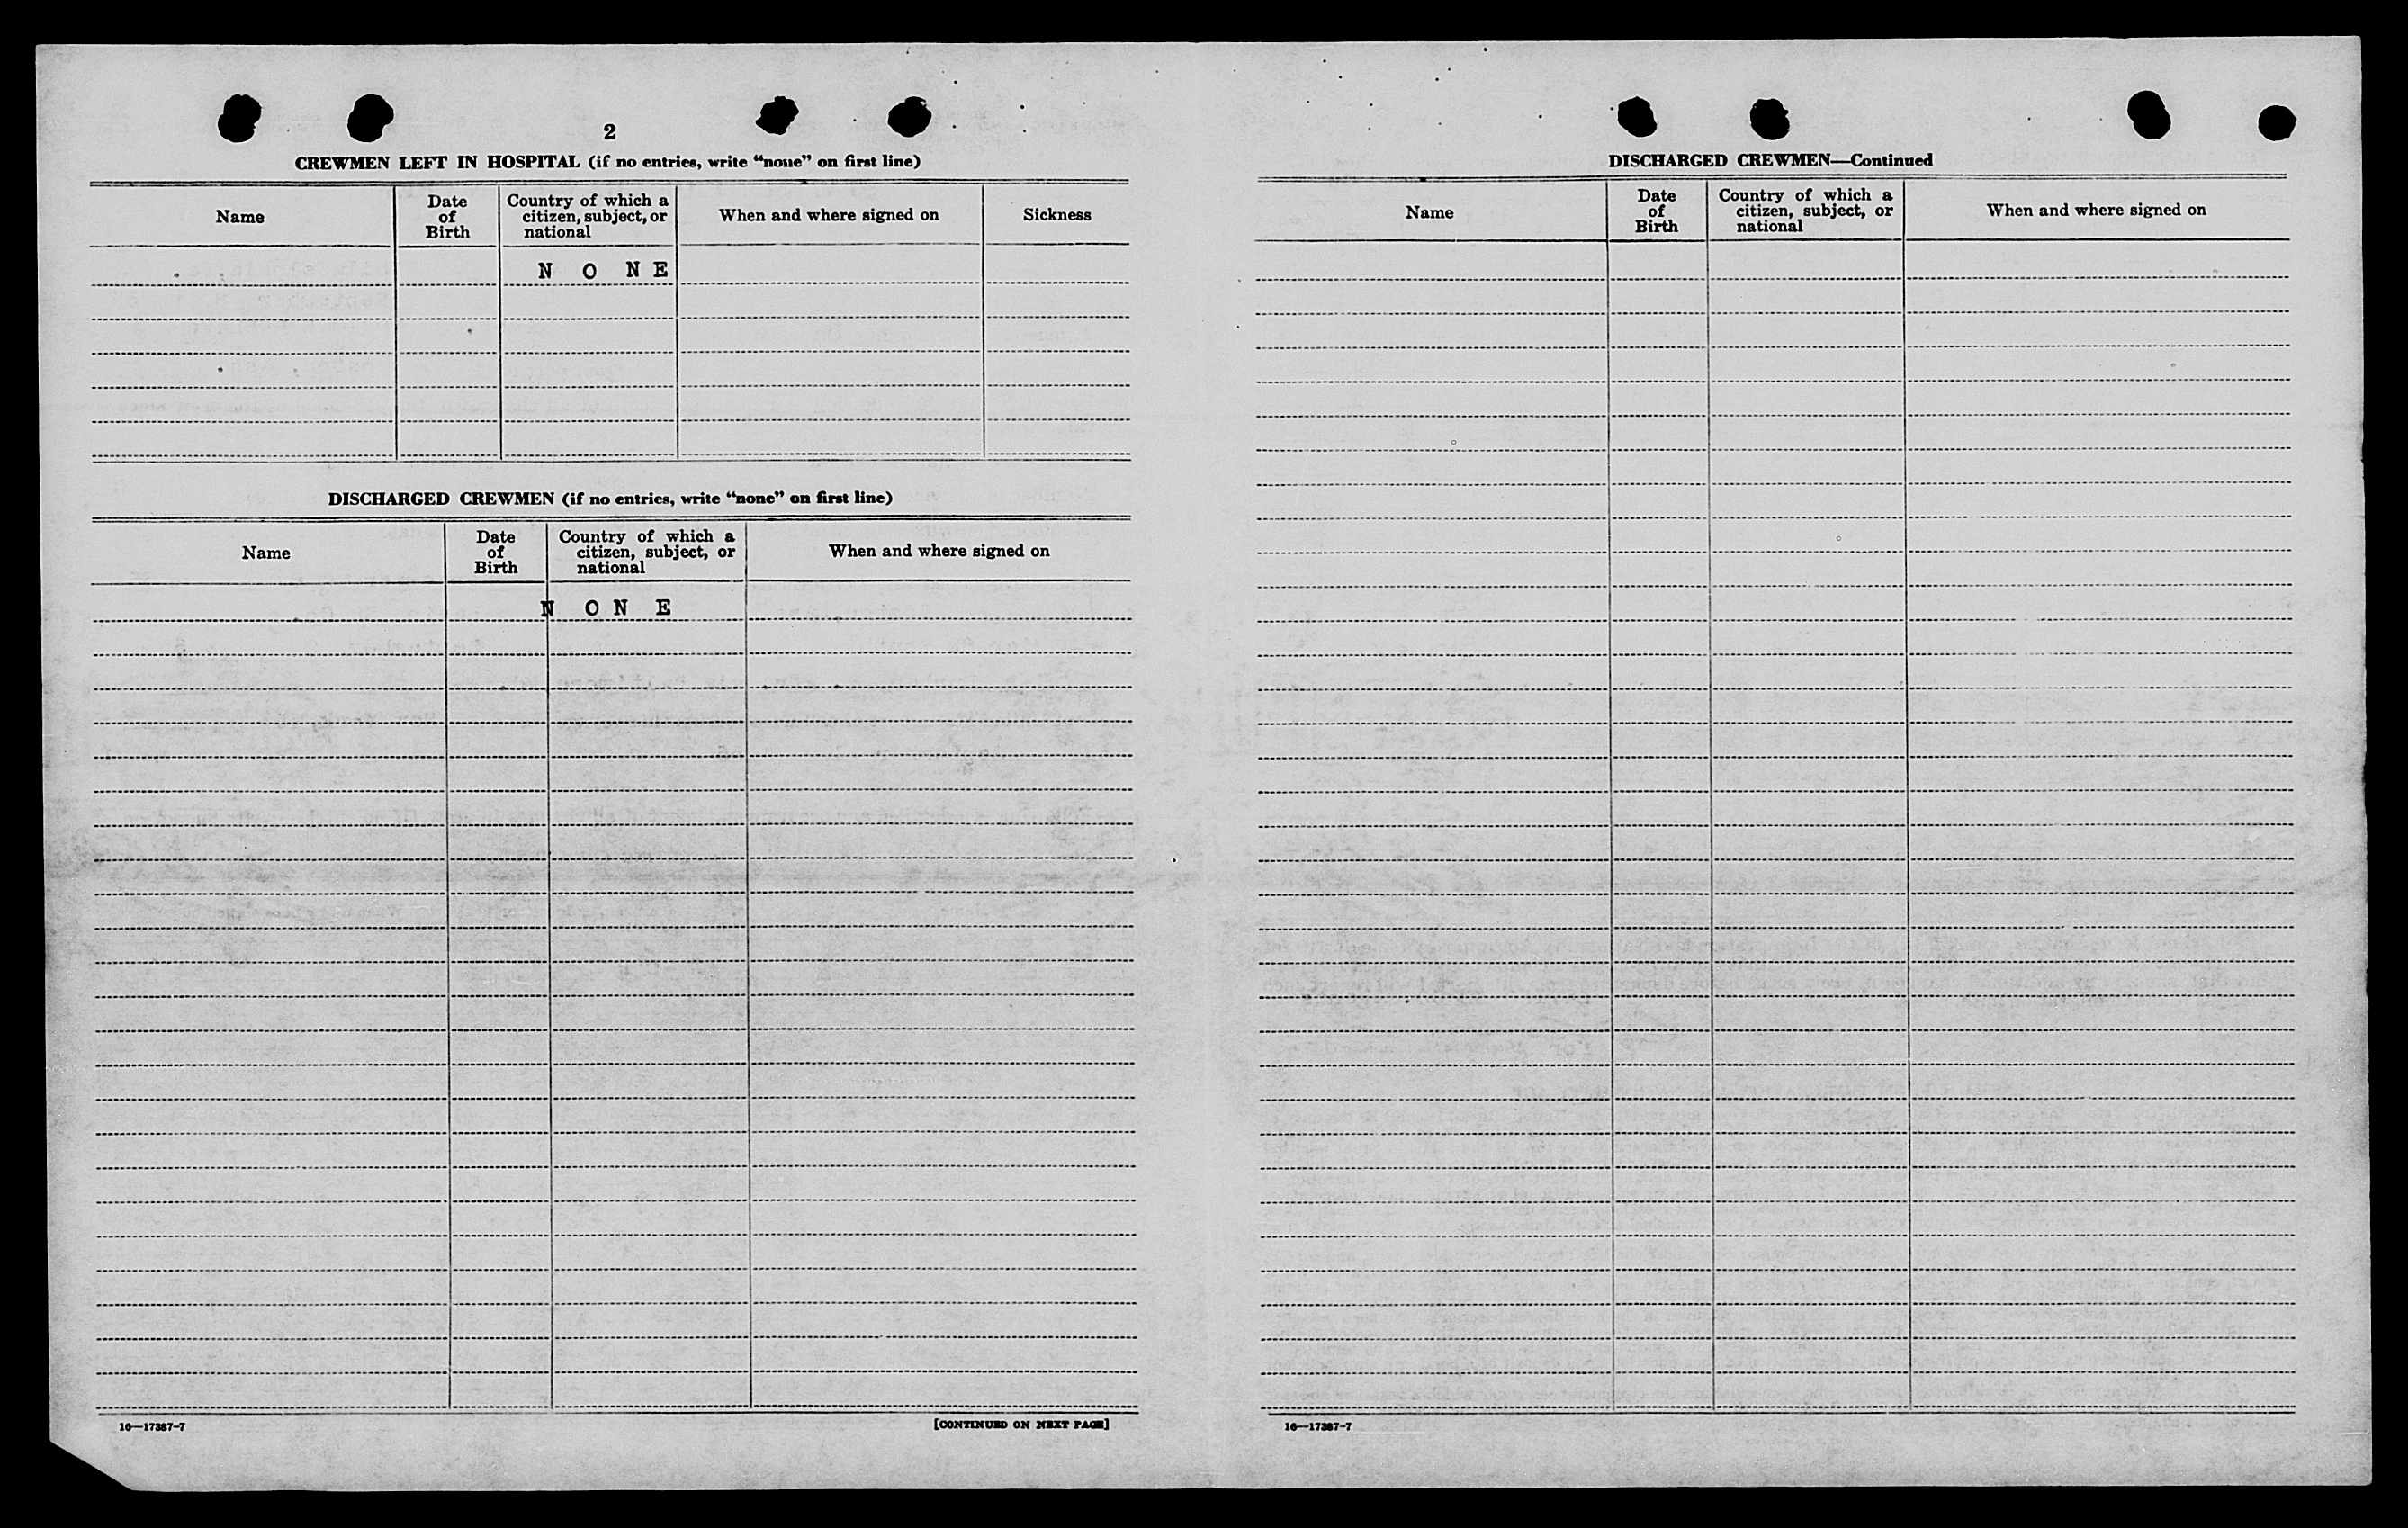 2
CREWMEN LEFT IN HOSPITAL (if no entries, write "none" on first line)
Name
Date of Birth
Country of which a citizen, subject, or national
When and where signed on
Sickness
N O N E
DISCHARGED CREWMEN (if no entries, write "none" on first line)
Name
Date of Birth
Country of which a citizen, subject, or national
When and where signed on
N O N E
16—17387-7
[CONTINUED ON NEXT PAGE]
DISCHARGED CREWMEN—Continued
Name
Date of Birth
Country of which a citizen, subject, or national
When and where signed on
16—17387-7